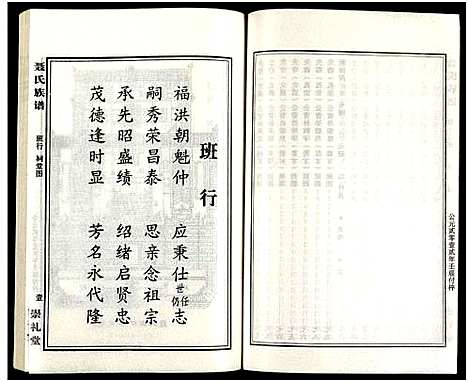 公元贰零壹贰年壬辰付梓
班行
福洪朝魁仲　应秉仕世仍任志
嗣秀荣昌泰　思亲念祖宗
承先昭盛绩　绍绪启贤忠
茂德逢时显　芳名永代隆
聂氏族谱
班行 祠堂图
壹
崇礼堂